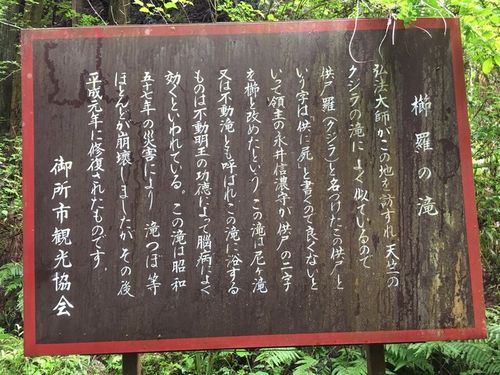 櫛羅の滝
弘法大師がこの地を訪ずれ天竺の
クジラの滝によく似ているので
供尸羅(クジラ)と名つけたこの供尸と
いう字は「供に屍」と書くので良くないと
いって領主の永井信濃守が供尸の二字
を櫛と改めたという。この滝は尼ヶ滝
又は不動滝とも呼ばれ、この滝に浴する
ものは不動明王の功徳によって脳病によく
効くといわれている。この滝は昭和
五十七年の災害により滝つぼ等
ほとんどが崩壊しましたが、その後
平成元年に修復されたものです。
御所市観光協会